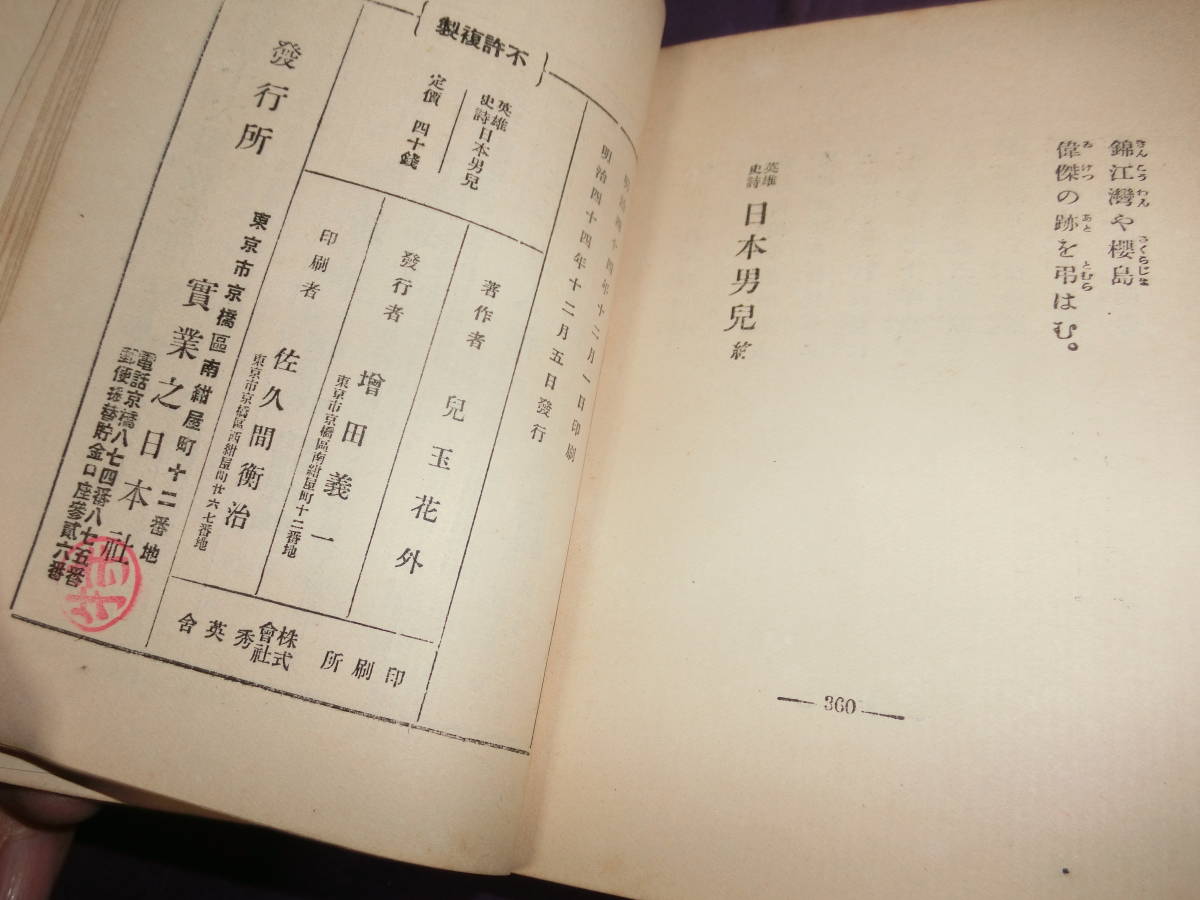 錦江灣や櫻島
偉傑の跡を弔はむ。
英雄史詩 日本男兒 終
360
明治四十四年十二月一日印刷
明治四十四年十二月五日發行
不許複製
英雄史詩 日本男兒
定價 四十錢
著作者 兒玉花外
發行者 增田義一
東京市京橋區南紺屋町十二番地
印刷者 佐久間衡治
東京市京橋區西紺屋町廿六七番地
印刷所 株式會社 秀英舍
發行所
東京市京橋區南紺屋町十二番地
實業之日本社
電話京橋八七四番八七五番
郵便振替貯金口座參貳六番